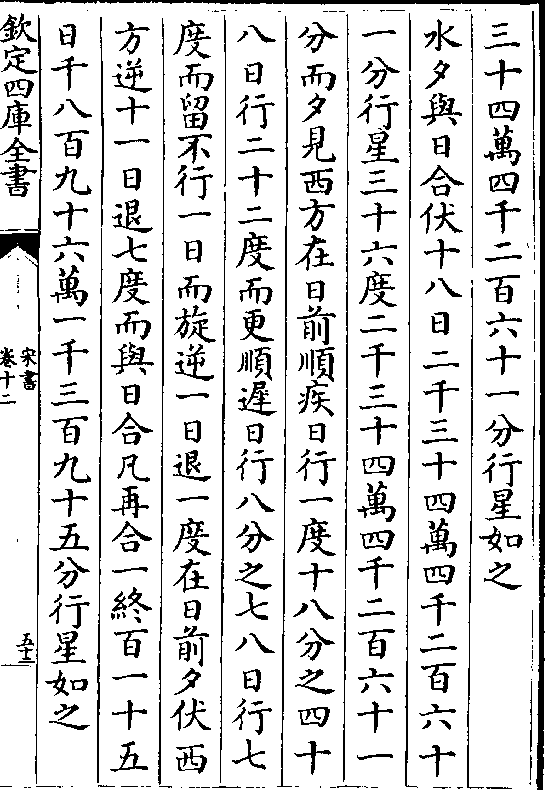 三十四萬四千二百六十一分行星如之
水夕與日合伏十八日二千三十四萬四千二百六十
一分行星三十六度二千三十四萬四千二百六十一
分而夕見西方在日前順疾日行一度十八分之四十
八日行二十二度而更順遲日行八分之七八日行七
度而留不行一日而旋逆一日退一度在日前夕伏西
方逆十一日退七度而與日合凡再合一終百一十五
日千八百九十六萬一千三百九十五分行星如之
欽定四庫全書
宋書
卷十二
五十三